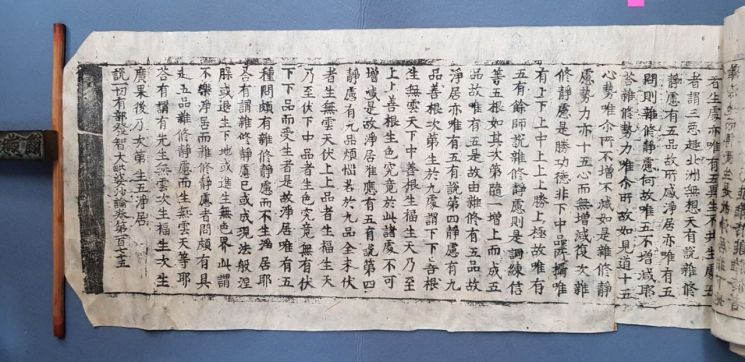 者生處亦唯有五再生不共生處五
者謂三惡趣北洲無想天有說雜修
靜慮有五品故所感淨居亦唯有五
問則雜修靜慮何故唯五不增減耶
荅雜修勢力唯尒所故如見道十五
心勢唯尒所不增不減如是雜修靜
慮勢力亦十五心而無增減復次雜
修靜慮是勝功德非下中品所攝唯
有上下上中上上上勝上極故唯有
五有餘師說雜修靜慮則是調練信
善五根如其次第隨一增上而成五
品故唯有五是故由雜修有五品故
淨居亦唯有五有說第四靜慮有九
品善根次第生於九處謂下下善根
生無雲天下中善根生福生天乃至
上上善根生色究竟於此諸處不可
增減是故淨居唯應有五有說第四
靜慮有九品煩惱若於九品全未伏
者生無雲天伏上上品者生福生天
乃至伏下中品者生色究竟無有伏
下下品而受生者是故淨居唯有五
種問頗有雜修靜慮而不生淨居耶
荅有謂雜修靜慮已或成現法般涅
槃或退生下地或進生無色界此謂
不樂淨居而雜修靜慮者問頗有具
足五品雜修靜慮而生無雲天等耶
荅有謂有先生無雲次生福生次生
廣果後乃次第生五淨居
說一切有部發智大毗婆沙論卷第百七十五